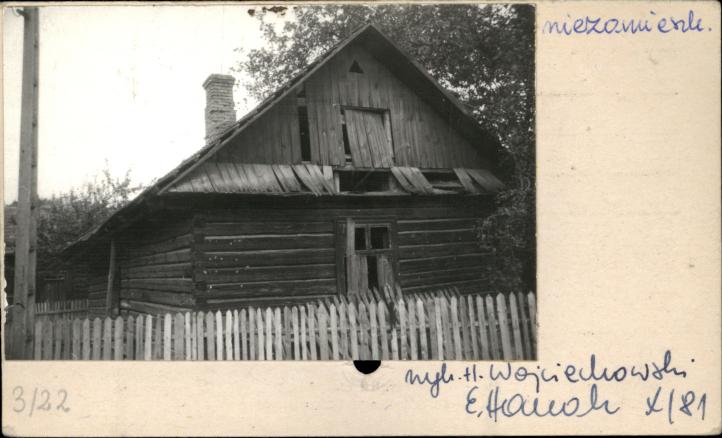 niezamieszk.
wyk. H. Wojciechowski
E. Hanok X/81
3/22